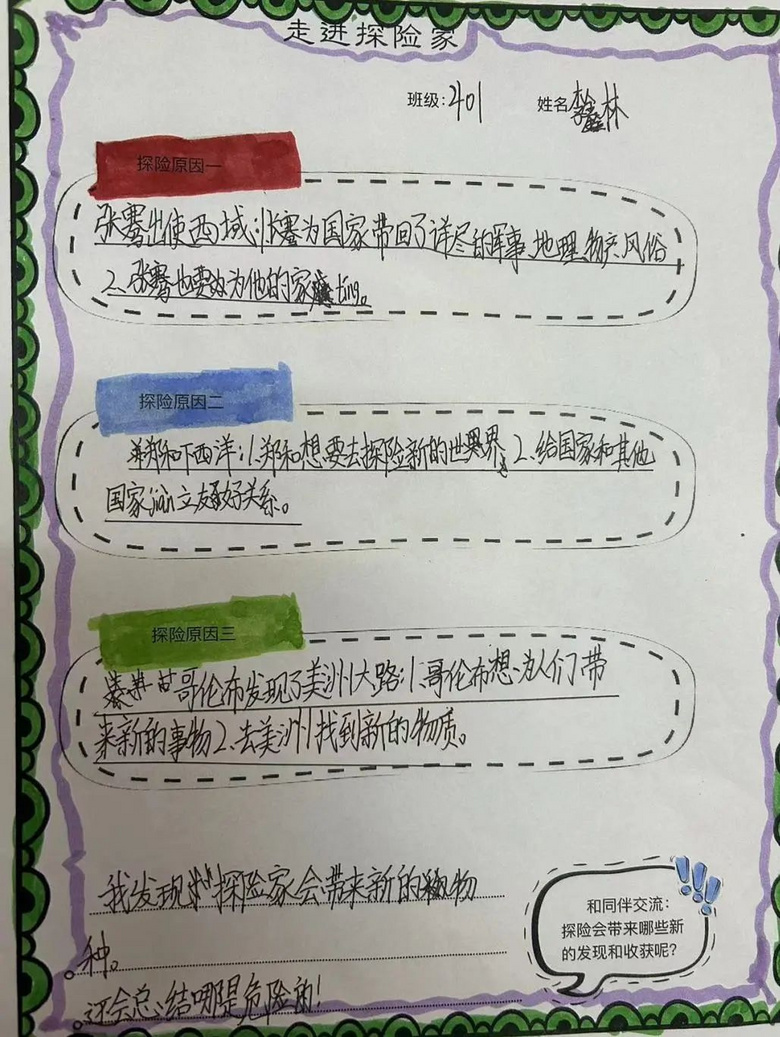 走进探险家
班级:401 姓名 林
探险原因一
张骞出使西域:1.张骞为国家带回了详尽的军事、地理、物产、风俗
2.张骞也要效为他的家 ting。
探险原因二
郑和下西洋:1.郑和想要去探险新的世界、2.给国家和其他
国家jiàn立友好关系。
探险原因三
哥伦布发现了美洲大路:1.哥伦布想为人们带
来新的事物2.去美洲找到新的物质。
我发现探险家会带来新的物
种。
还会总结哪是危险的!
和同伴交流:
探险会带来哪些新
的发现和收获呢?